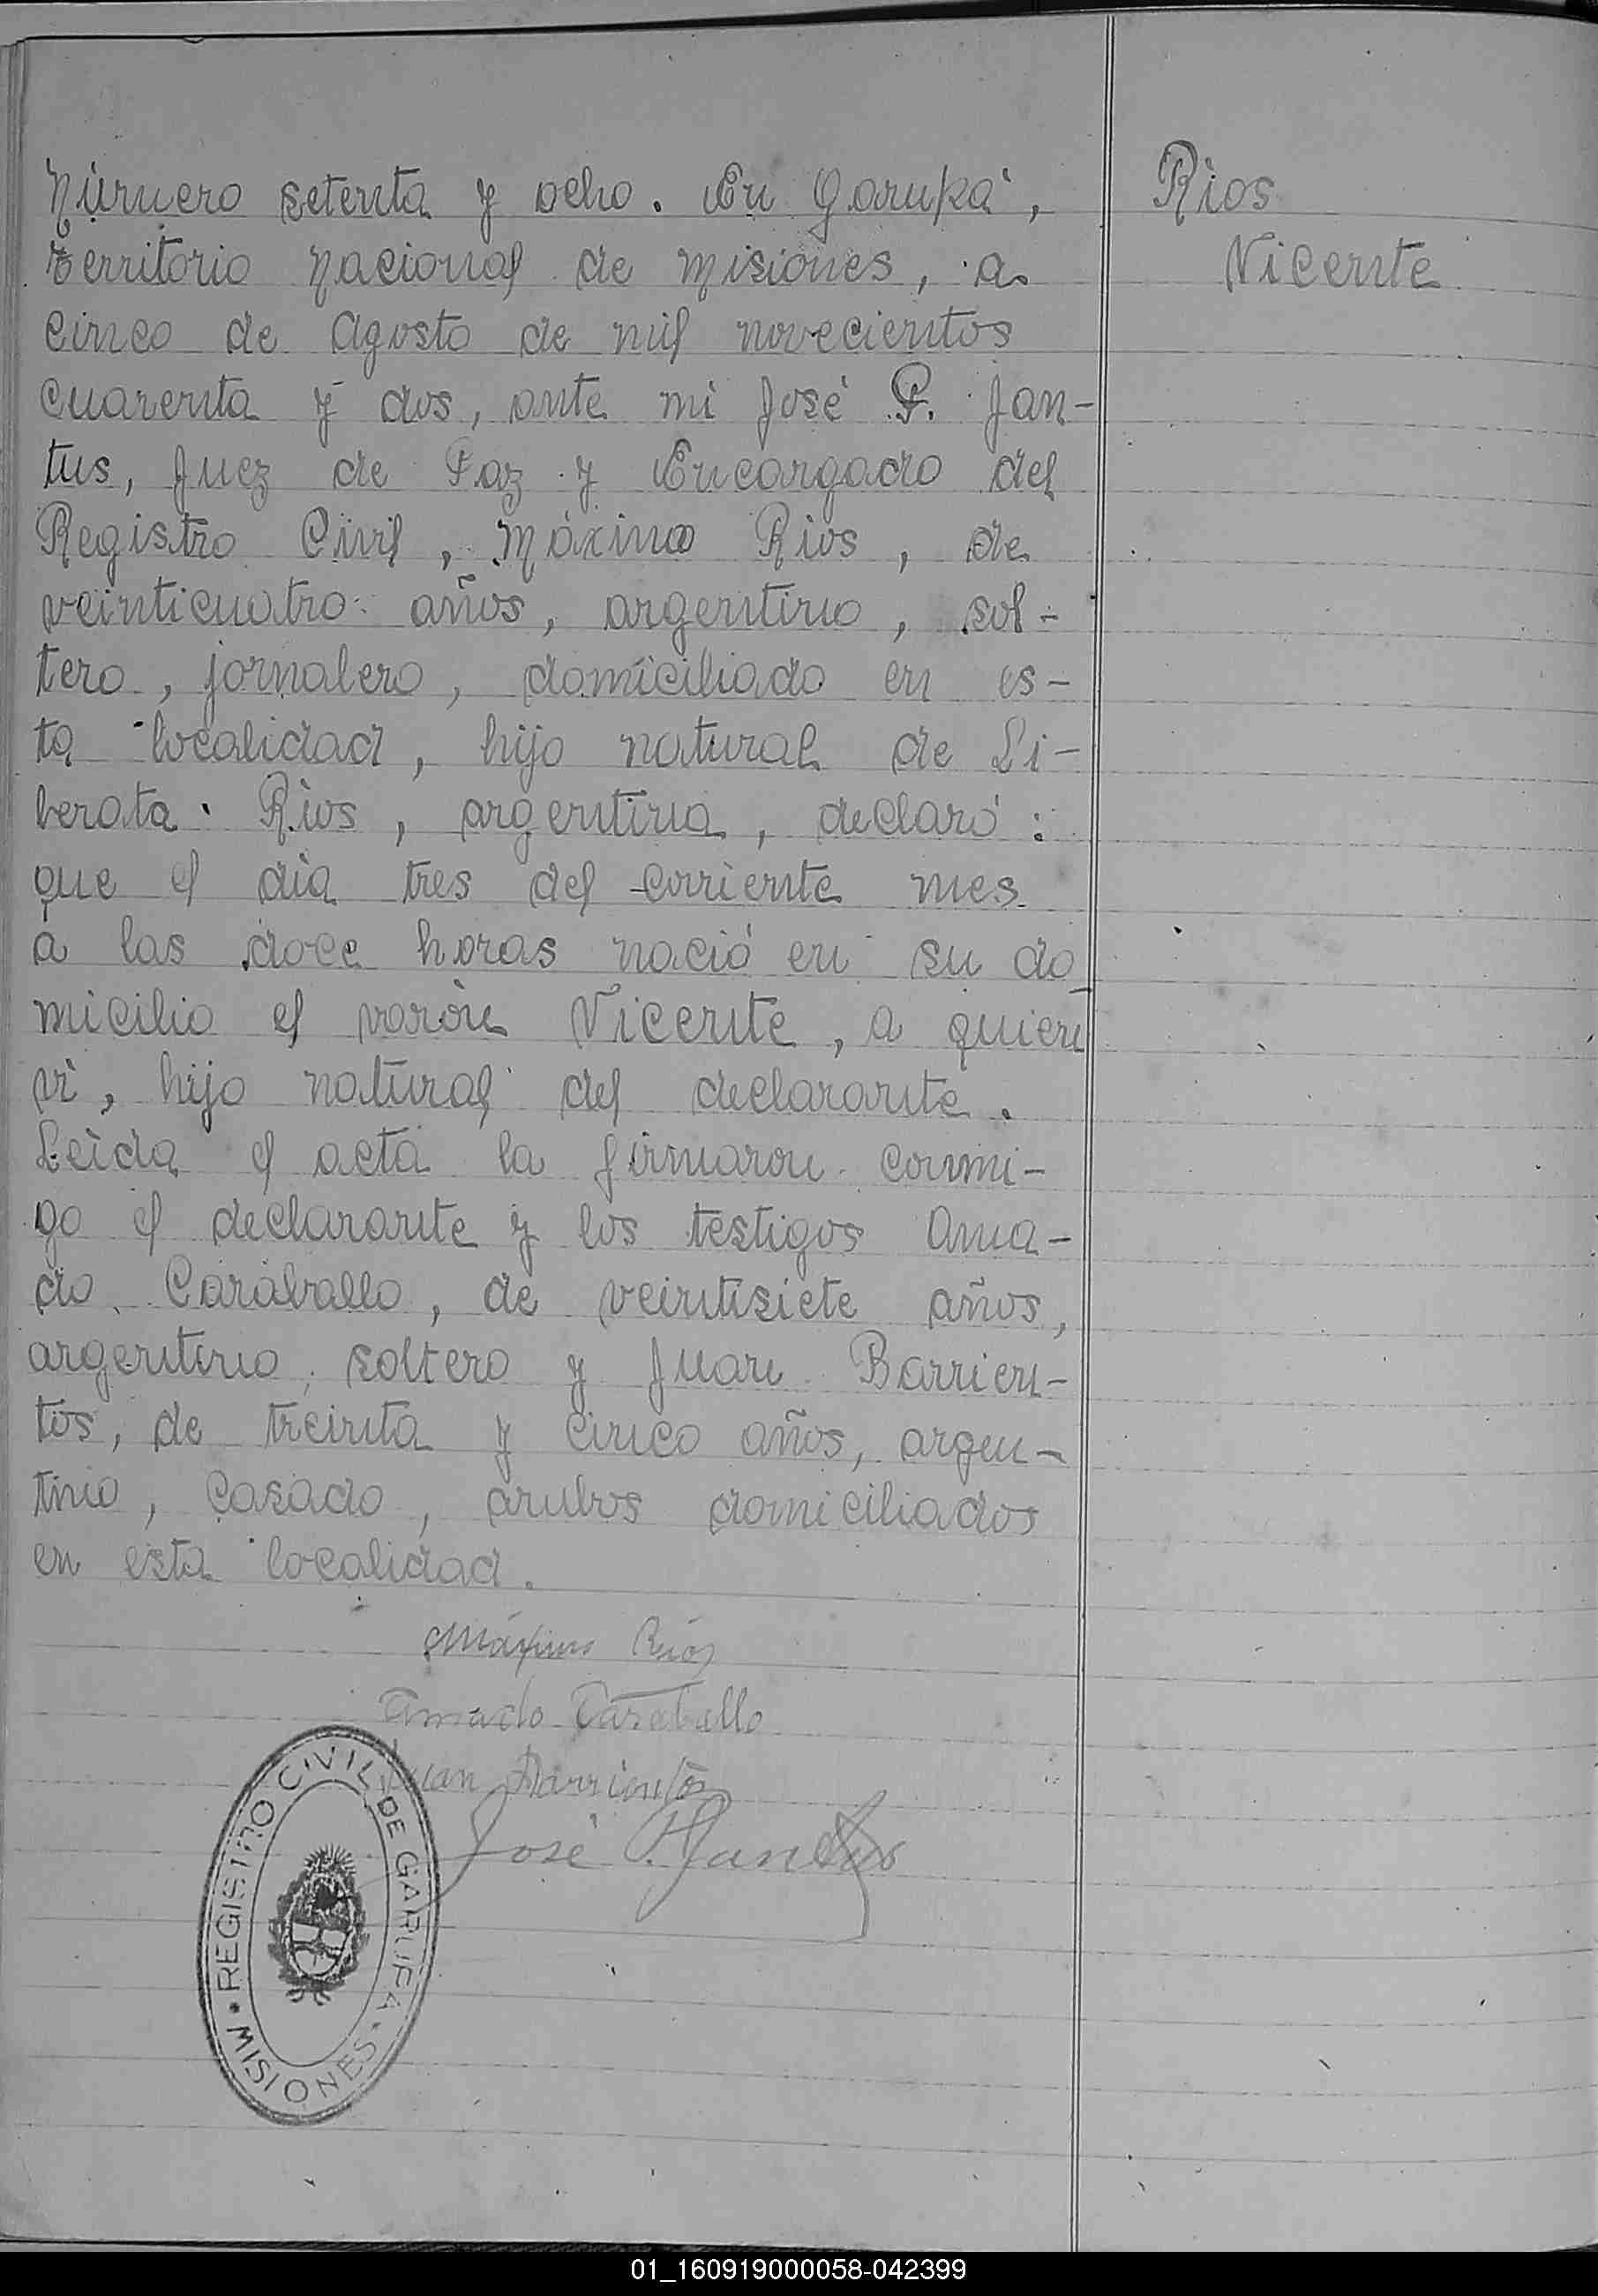 Número setenta y ocho. En Garupá,
Territorio Nacional de Misiones, a
cinco de Agosto de mil novecientos
cuarenta y dos, ante mi José P. Jan-
tus, Juez de Paz y Encargado del
Registro Civil, Máximo Rios, de
veinticuatro años, argentino, sol-
tero, jornalero, domiciliado en es-
ta localidad, hijo natural de Li-
berata Rios, argentina, declaró:
que el dia tres del corriente mes
a las doce horas nació en su do
micilio el varón Vicente, a quien
vi, hijo natural del declarante.
Leida el acta la firmaron conmi-
go el declarante y los testigos Ama-
do Caraballo, de veintisiete años,
argentino, soltero y Juan Barrien-
tos, de treinta y cinco años, argen-
tino, casado, ambos domiciliados
en esta localidad.
Rios
Vicente
Máximo Ríos
Amado Caraballo
Juan Barrientos
José P. Jantus
REGISTRO CIVIL DE GARUPA
MISIONES
01_160919000058-042399